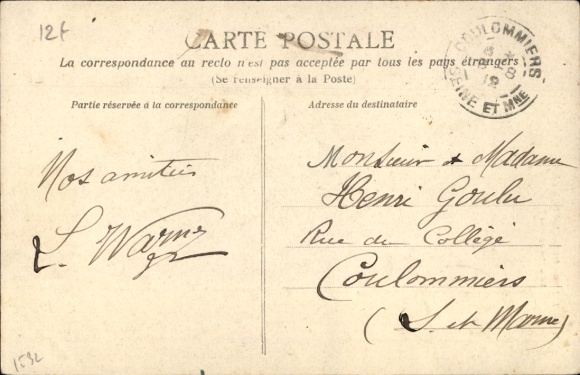 12f
CARTE POSTALE
La correspondance au recto n'est pas acceptée par tous les pays étrangers
(Se renseigner à la Poste)
COULOMMIERS
SEINE ET MNE
Partie réservée à la correspondance
Adresse du destinataire
Nos amitiés
Monsieur et Madame
Henri Goulu
Rue du Collège
Coulommiers
(S. et Marne)